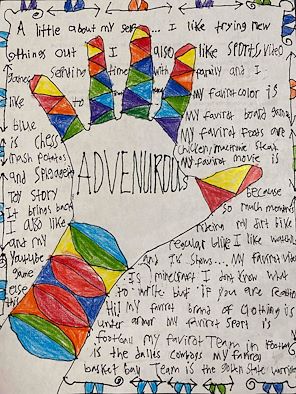 A little about my self... I like trying new
things out I also like SPORTS, video
games spending time with family and I
like to
My favirt color is
blue My favirit board game
is chess My favirit foods are
Mash potatos chicken/machine steak
and spiegget My favirit movie is
Toy Story because
ADVENUROUS
it brings back so much memories
I also like riding my dirt bike
and my regular bike I like watching
Youtube and tv shows... My favirit video
game is minecraft I dont know what
else to write but if you are reading
this Hi! My favirt brand of Clothing is
under armor My favirit sport is
football my favirit Team in football
is the dallas comboys My favirey
basket bay Team is the golden state warriors